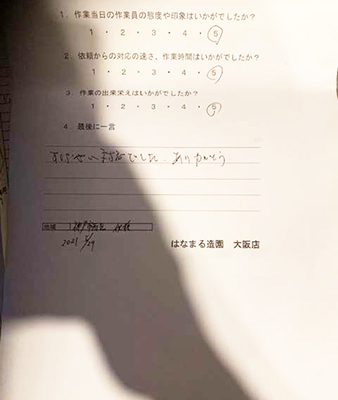 1. 作業当日の作業員の態度や印象はいかがでしたか?
1 ・ 2 ・ 3 ・ 4 ・ 5
2. 依頼からの対応の速さ、作業時間はいかがでしたか?
1 ・ 2 ・ 3 ・ 4 ・ 5
3. 作業の出来栄えはいかがでしたか?
1 ・ 2 ・ 3 ・ 4 ・ 5
4. 最後に一言
でした. ありがとう
地域
2021
はなまる造園 大阪店